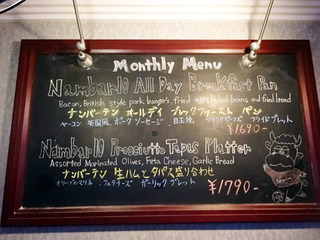 Monthly Menu
Nambar10 All Day Breakfast Pan
Bacon, British style pork bangers, fried eggs, baked beans and fried bread
ナンバーテン オールデイ ブレックファースト パン
ベーコン 英国風 ポーク ソーセージ 目玉焼 ベイクドビーンズ フライドブレット
¥1690-
Nambar10 Prosciutto Tapas Platter
Assorted Marinated Olives, Feta Cheese, Garlic Bread
ナンバーテン 生ハムとタパス盛り合わせ
オリーブのマリネ フェタチーズ ガーリック ブレット
¥1790-